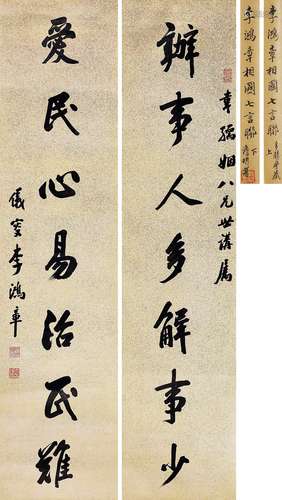 李鴻章相國七言聯
上
李鴻章相國七言聯
下
孺姻八兄世講屬
辦事人多解事少
愛民心易治民難
儀叟李鴻章